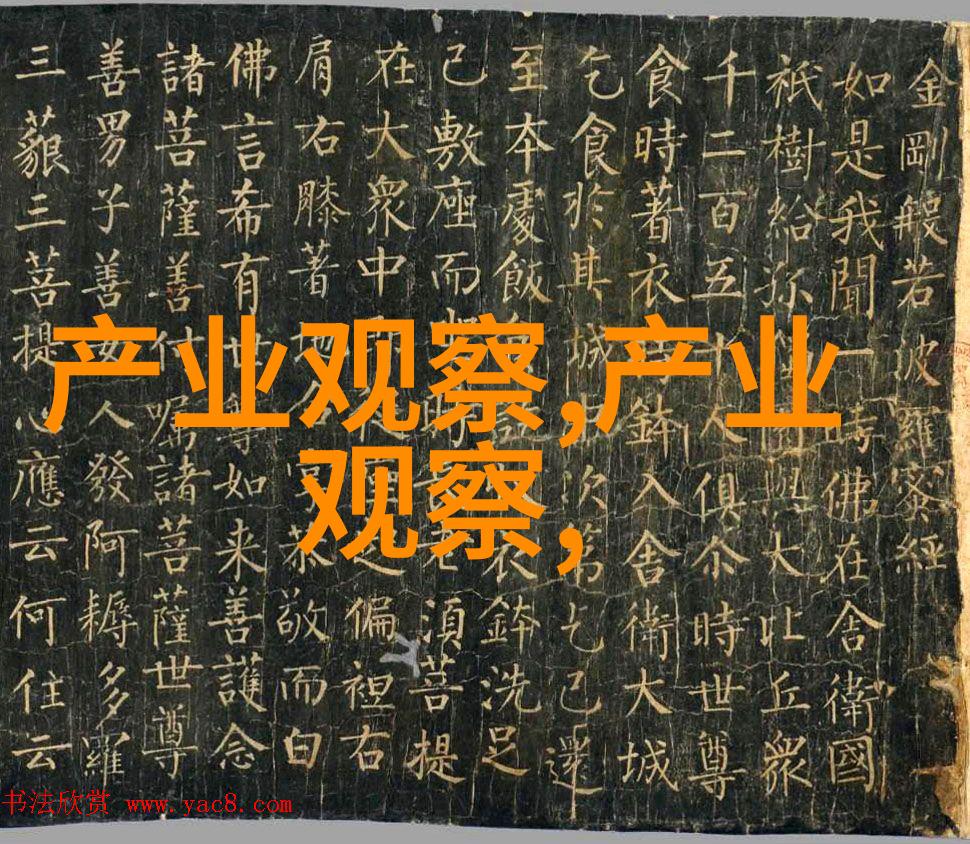 金剛般若波羅蜜經
如是我聞一時佛在舍衛國
祇樹給孤園與大比丘眾
千二百五十人俱尒時世尊
食時著衣持鉢入舍衛大城
乞食於其城中次第乞已還
至本處飯食衣鉢洗足
已敷座而時老須菩提
在大眾中座起偏袒右
肩右膝著地合掌恭敬而白
佛言希有世尊如来善護念
諸菩薩善付嘱諸菩薩世尊
善男子善女人發阿耨多羅
三藐三菩提心應云何住云
产业观察,产业
观察,
书法欣赏 www.yac8.com